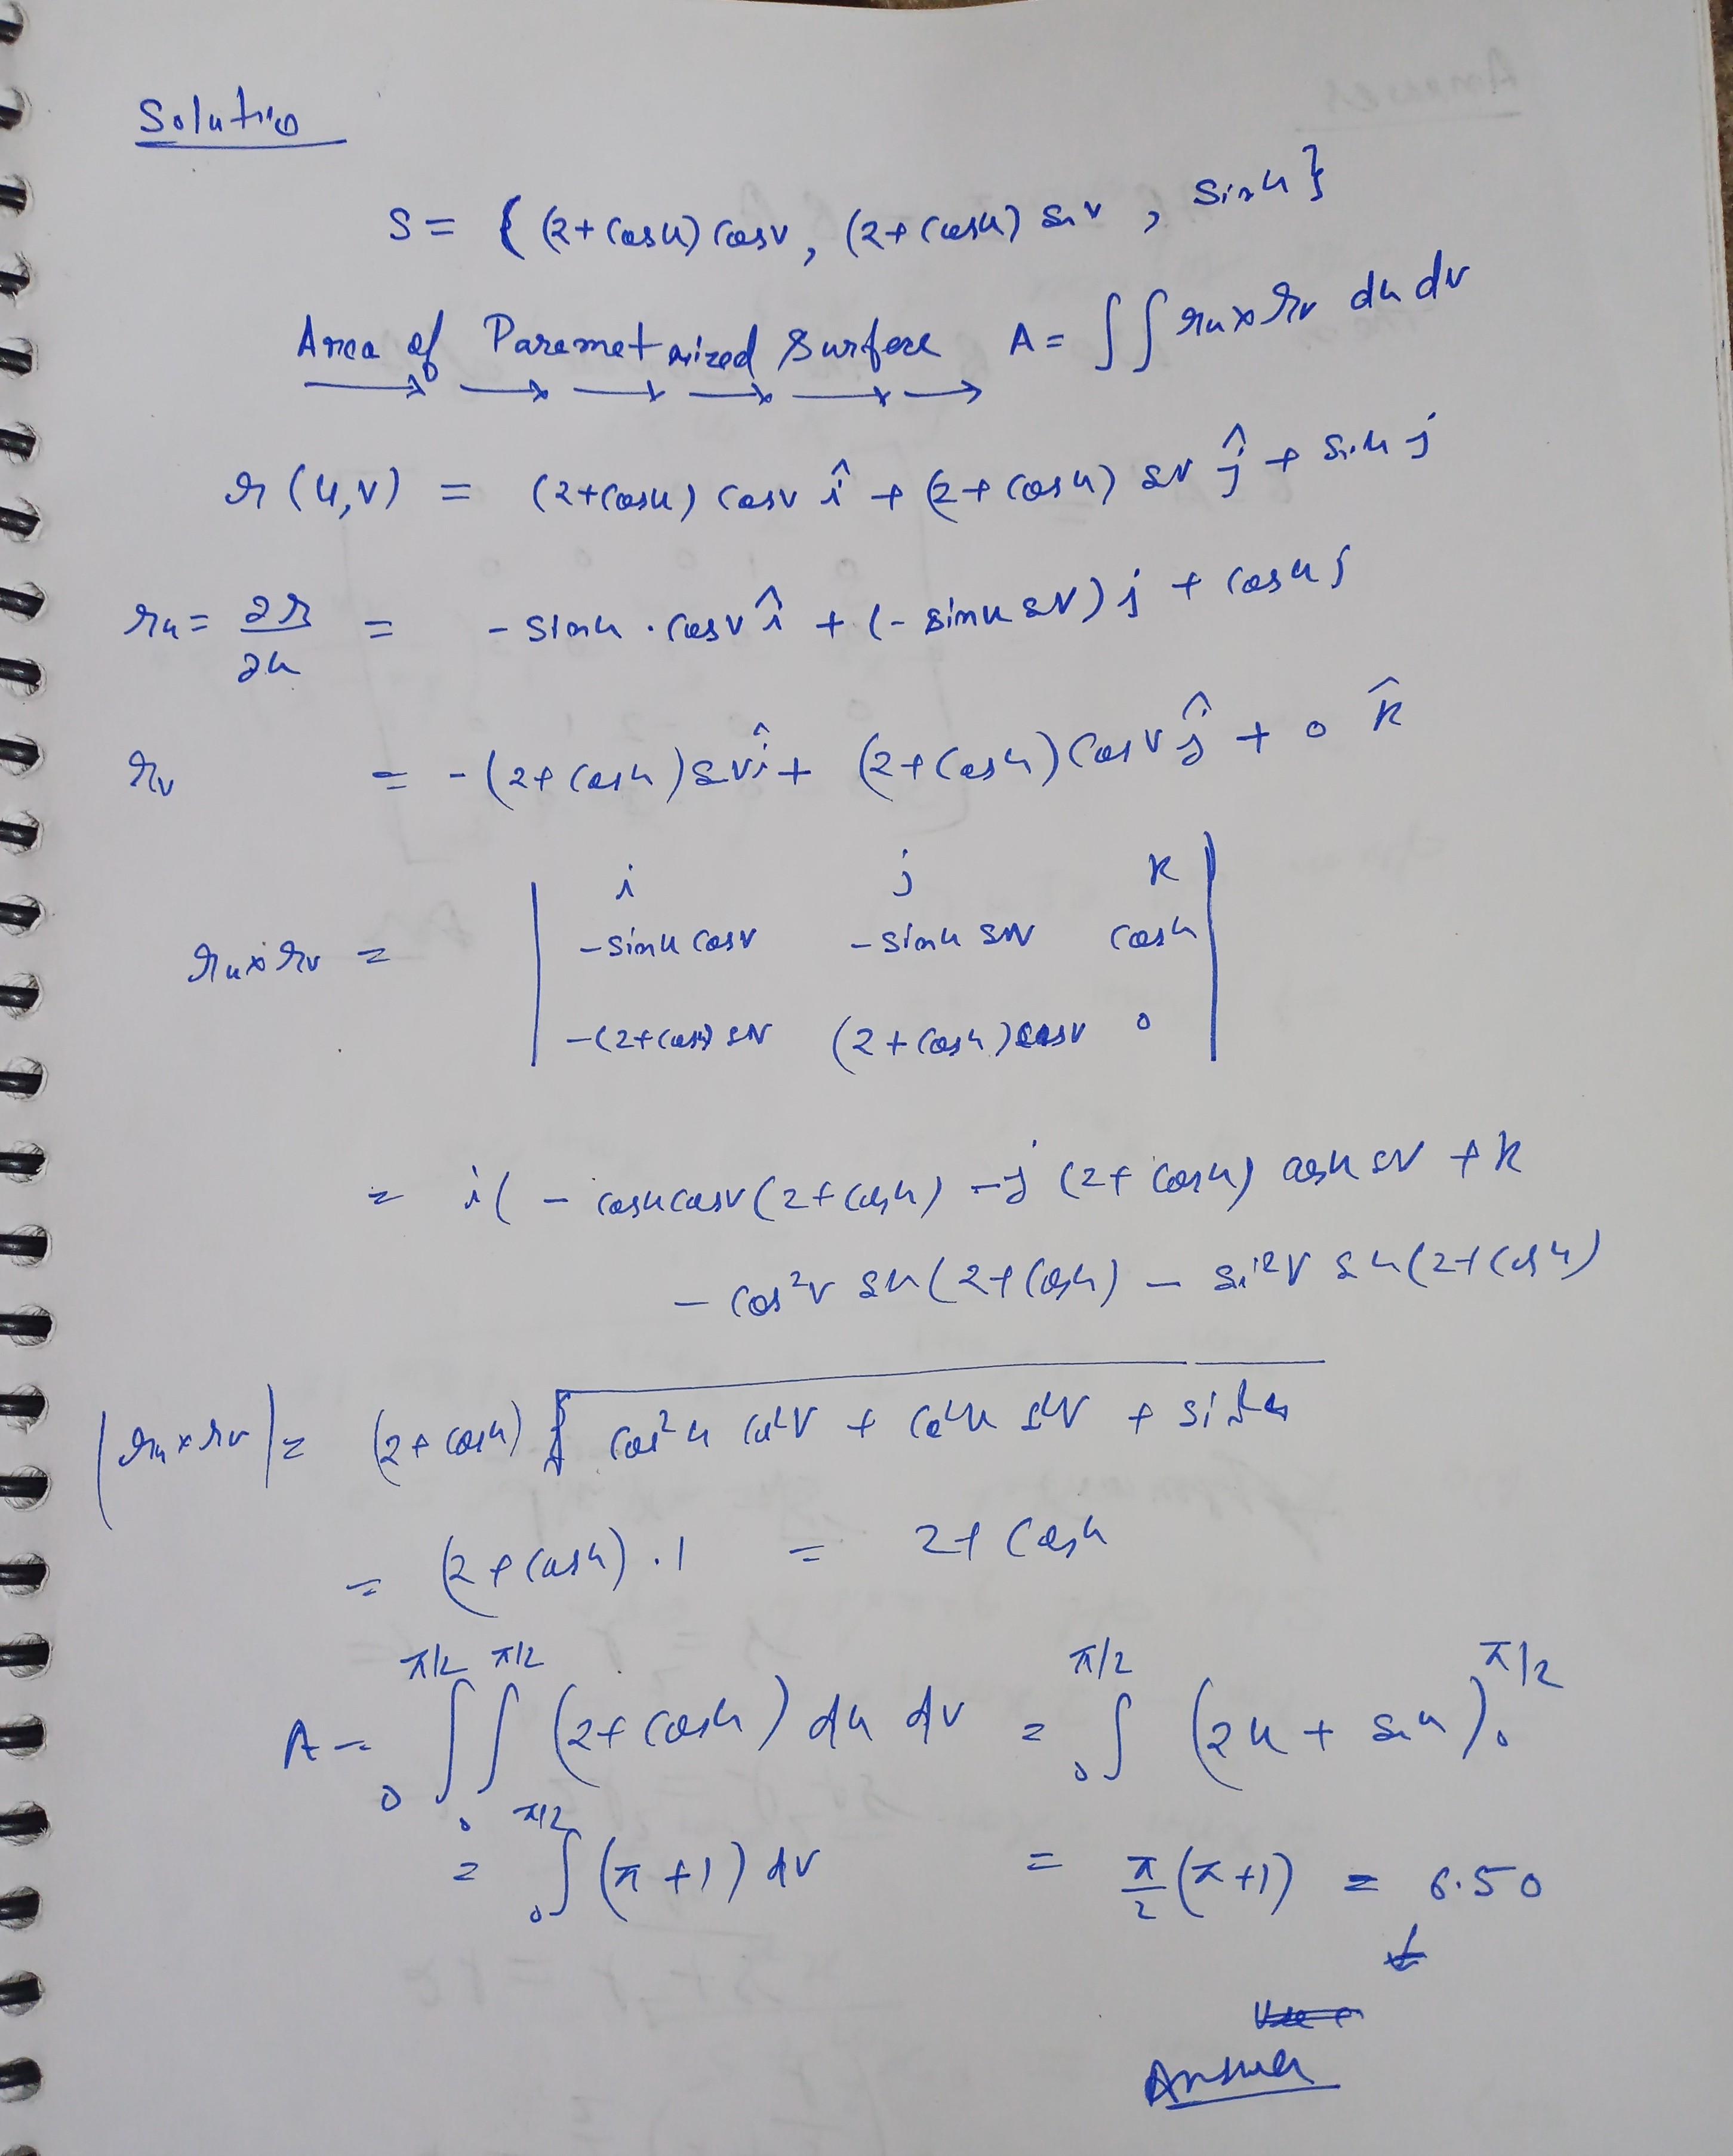 Solution
S = { (2+cosu) cosv, (2+cosu) sinv , sinu }
Area of Parametrized Surface A = ∫∫ ru×rv du dv
r (u,v) = (2+cosu) cosv î + (2+cosu) sinv ĵ + sinu j
ru = ∂r/∂u = -sinu . cosv î + (-sinu sinv) j + cosu j
rv = -(2+cosu) sinv î + (2+cosu) cosv ĵ + 0 k̂
i j k
ru×rv = | -sinu cosv -sinu sinv cosu |
-(2+cosu) sinv (2+cosu) cosv 0
= i( - cosu cosv (2+cosu) -j (2+cosu) cosu sinv + k
- cos²v sinu (2+cosu) - sin²v sinu (2+cosu)
|ru×rv| = (2+cosu) √ cos²u cos²v + cos²u sin²v + sin²u
= (2+cosu) . 1 = 2+ cosu
A = ∫₀^π/2 ∫₀^π/2 (2+cosu) du dv = ∫₀^π/2 (2u + sinu)₀^π/2
= ∫₀^π/2 (π+1) dv = π/2 (π+1) = 6.50
Answer